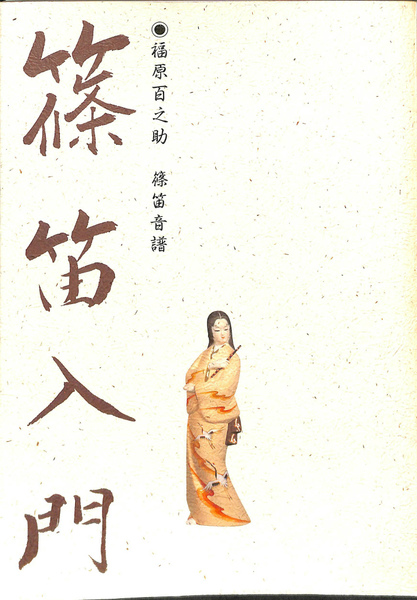 ◉福原百之助 篠笛音譜
篠笛入門